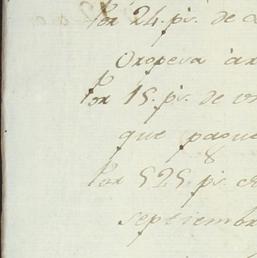 Por 24. p.s de
Oropesa
Por 15. p.s de
que pague
Por 525 p.s
septiembr